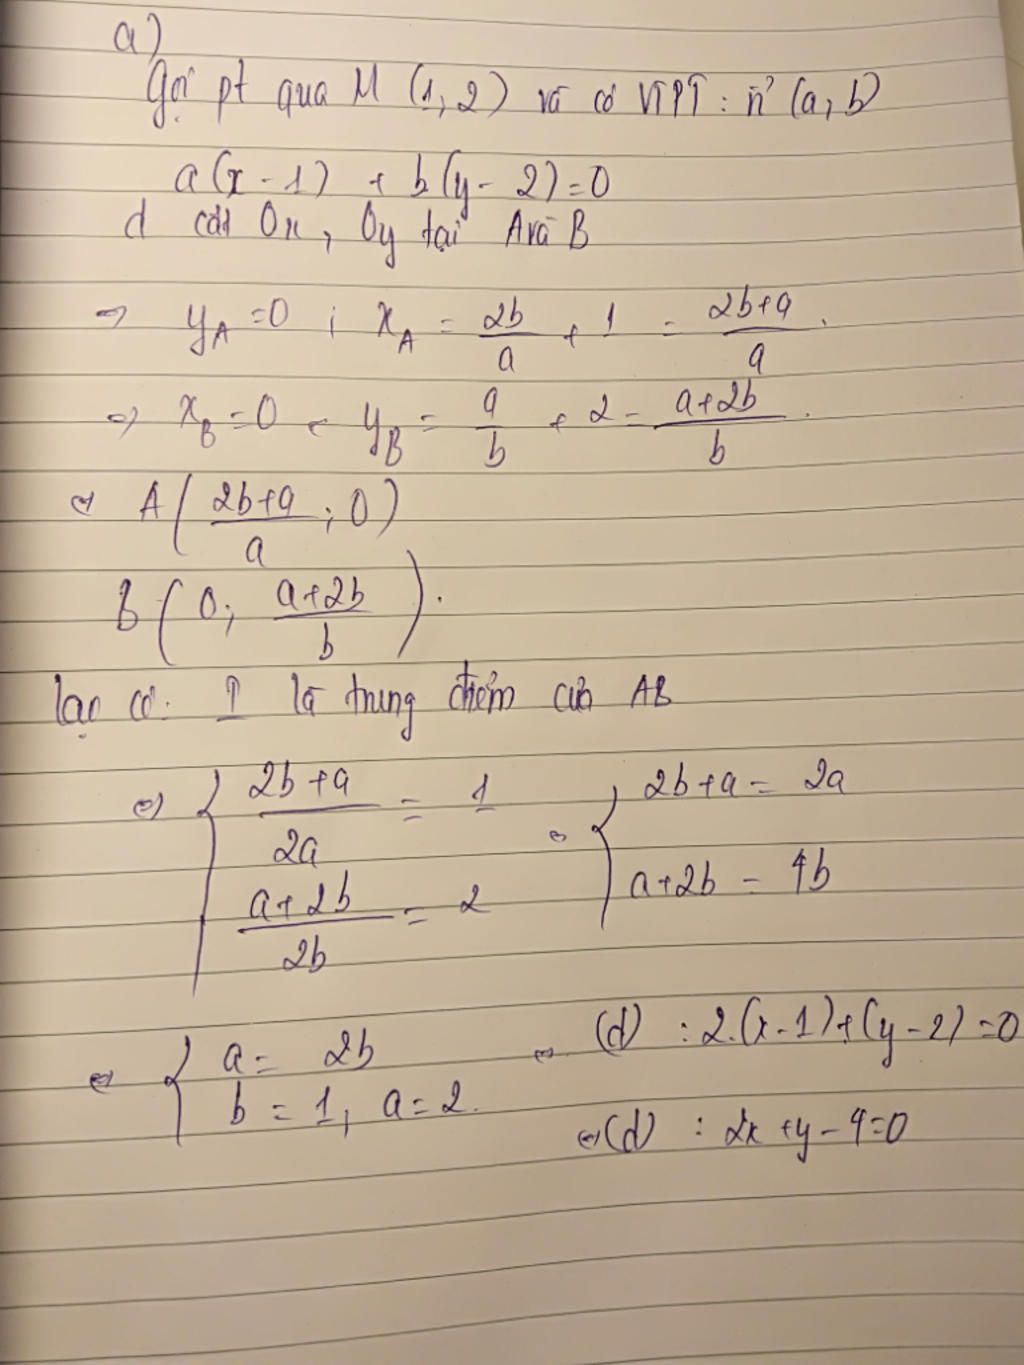 a)
Gọi pt qua M (1, 2) và có VTPT : n⃗ (a, b)
a(x - 1) + b(y - 2) = 0
d cắt Ox, Oy tại A và B
⇒ y_A = 0 ; x_A = \frac{2b}{a} + 1 = \frac{2b+a}{a}.
⇒ x_B = 0 , y_B = \frac{a}{b} + 2 = \frac{a+2b}{b}.
⇔ A ( \frac{2b+a}{a} ; 0 )
B ( 0; \frac{a+2b}{b} ).
lại có: I là trung điểm của AB
⇔ { \frac{2b+a}{2a} = 1 ⇔ { 2b+a = 2a
\frac{a+2b}{2b} = 2 a+2b = 4b
⇔ { a = 2b ⇔ (d) : 2.(x-1)+(y-2) = 0
b = 1, a = 2.
⇔ (d) : 2x + y - 4 = 0